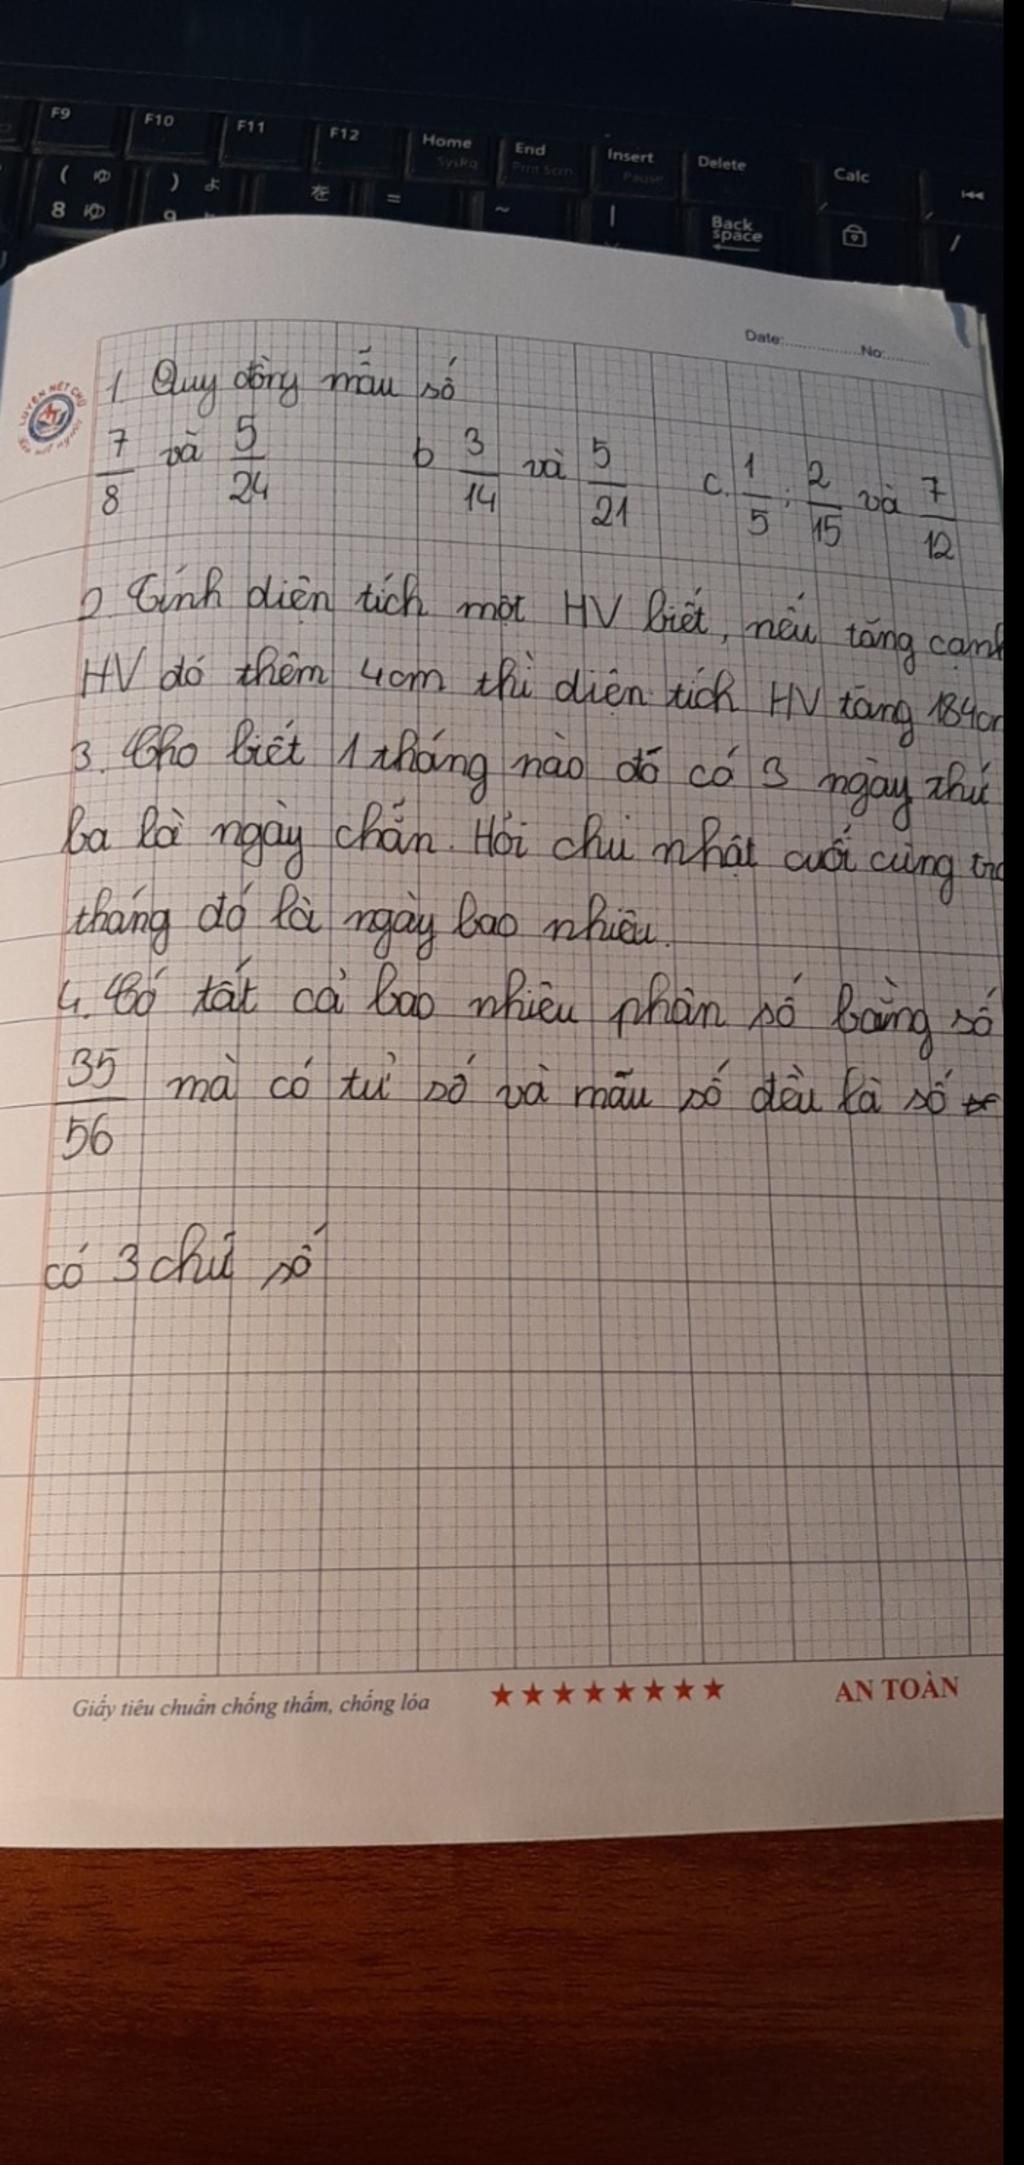 F9 F10 F11 F12 Home End Insert Delete Calc
SysRq Prnt Scrn Pause
( ゆ ) よ を = ~ | Back space
8 ゆ 9 /
Date: No:
LUYỆN NÉT CHỮ
1 Quy đồng mẫu số
7/8 và 5/24 b 3/14 và 5/21 c. 1/5 ; 2/15 và 7/12
2 Tính diện tích một HV biết, nếu tăng cạnh
HV đó thêm 4cm thì diện tích HV tăng 184cm
3. Cho biết 1 tháng nào đó có 3 ngày thứ
ba là ngày chẵn. Hỏi chủ nhật cuối cùng tro
tháng đó là ngày bao nhiêu.
4. Có tất cả bao nhiêu phân số bằng số
35/56 mà có tử số và mẫu số đều là số
có 3 chữ số
Giấy tiêu chuẩn chống thấm, chống lóa ★★★★★★★★ AN TOÀN